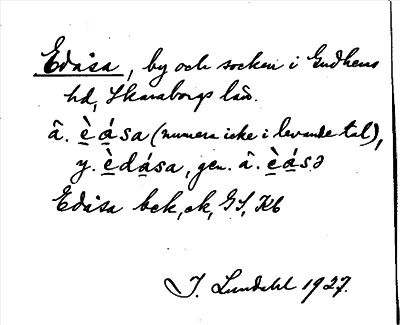 Edåsa, by och socken i Gudhems
hd, Skaraborgs län.
â. è̱ á̱sa (numera icke i levande tal),
y. è̱dá̱sa, gen. â. è̱á̱sə
Edåsa bck, ek, GS, Kb
I. Lundahl 1927.